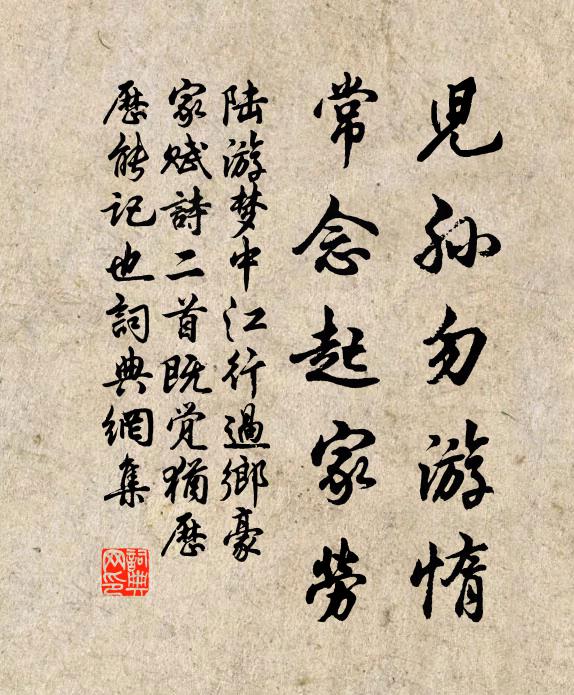 児孙勿游惰
常念起家劳
陆游梦中江行過鄉豪
家赋詩二首既觉猶歷
歷能记也詞典網集
詞典
网印